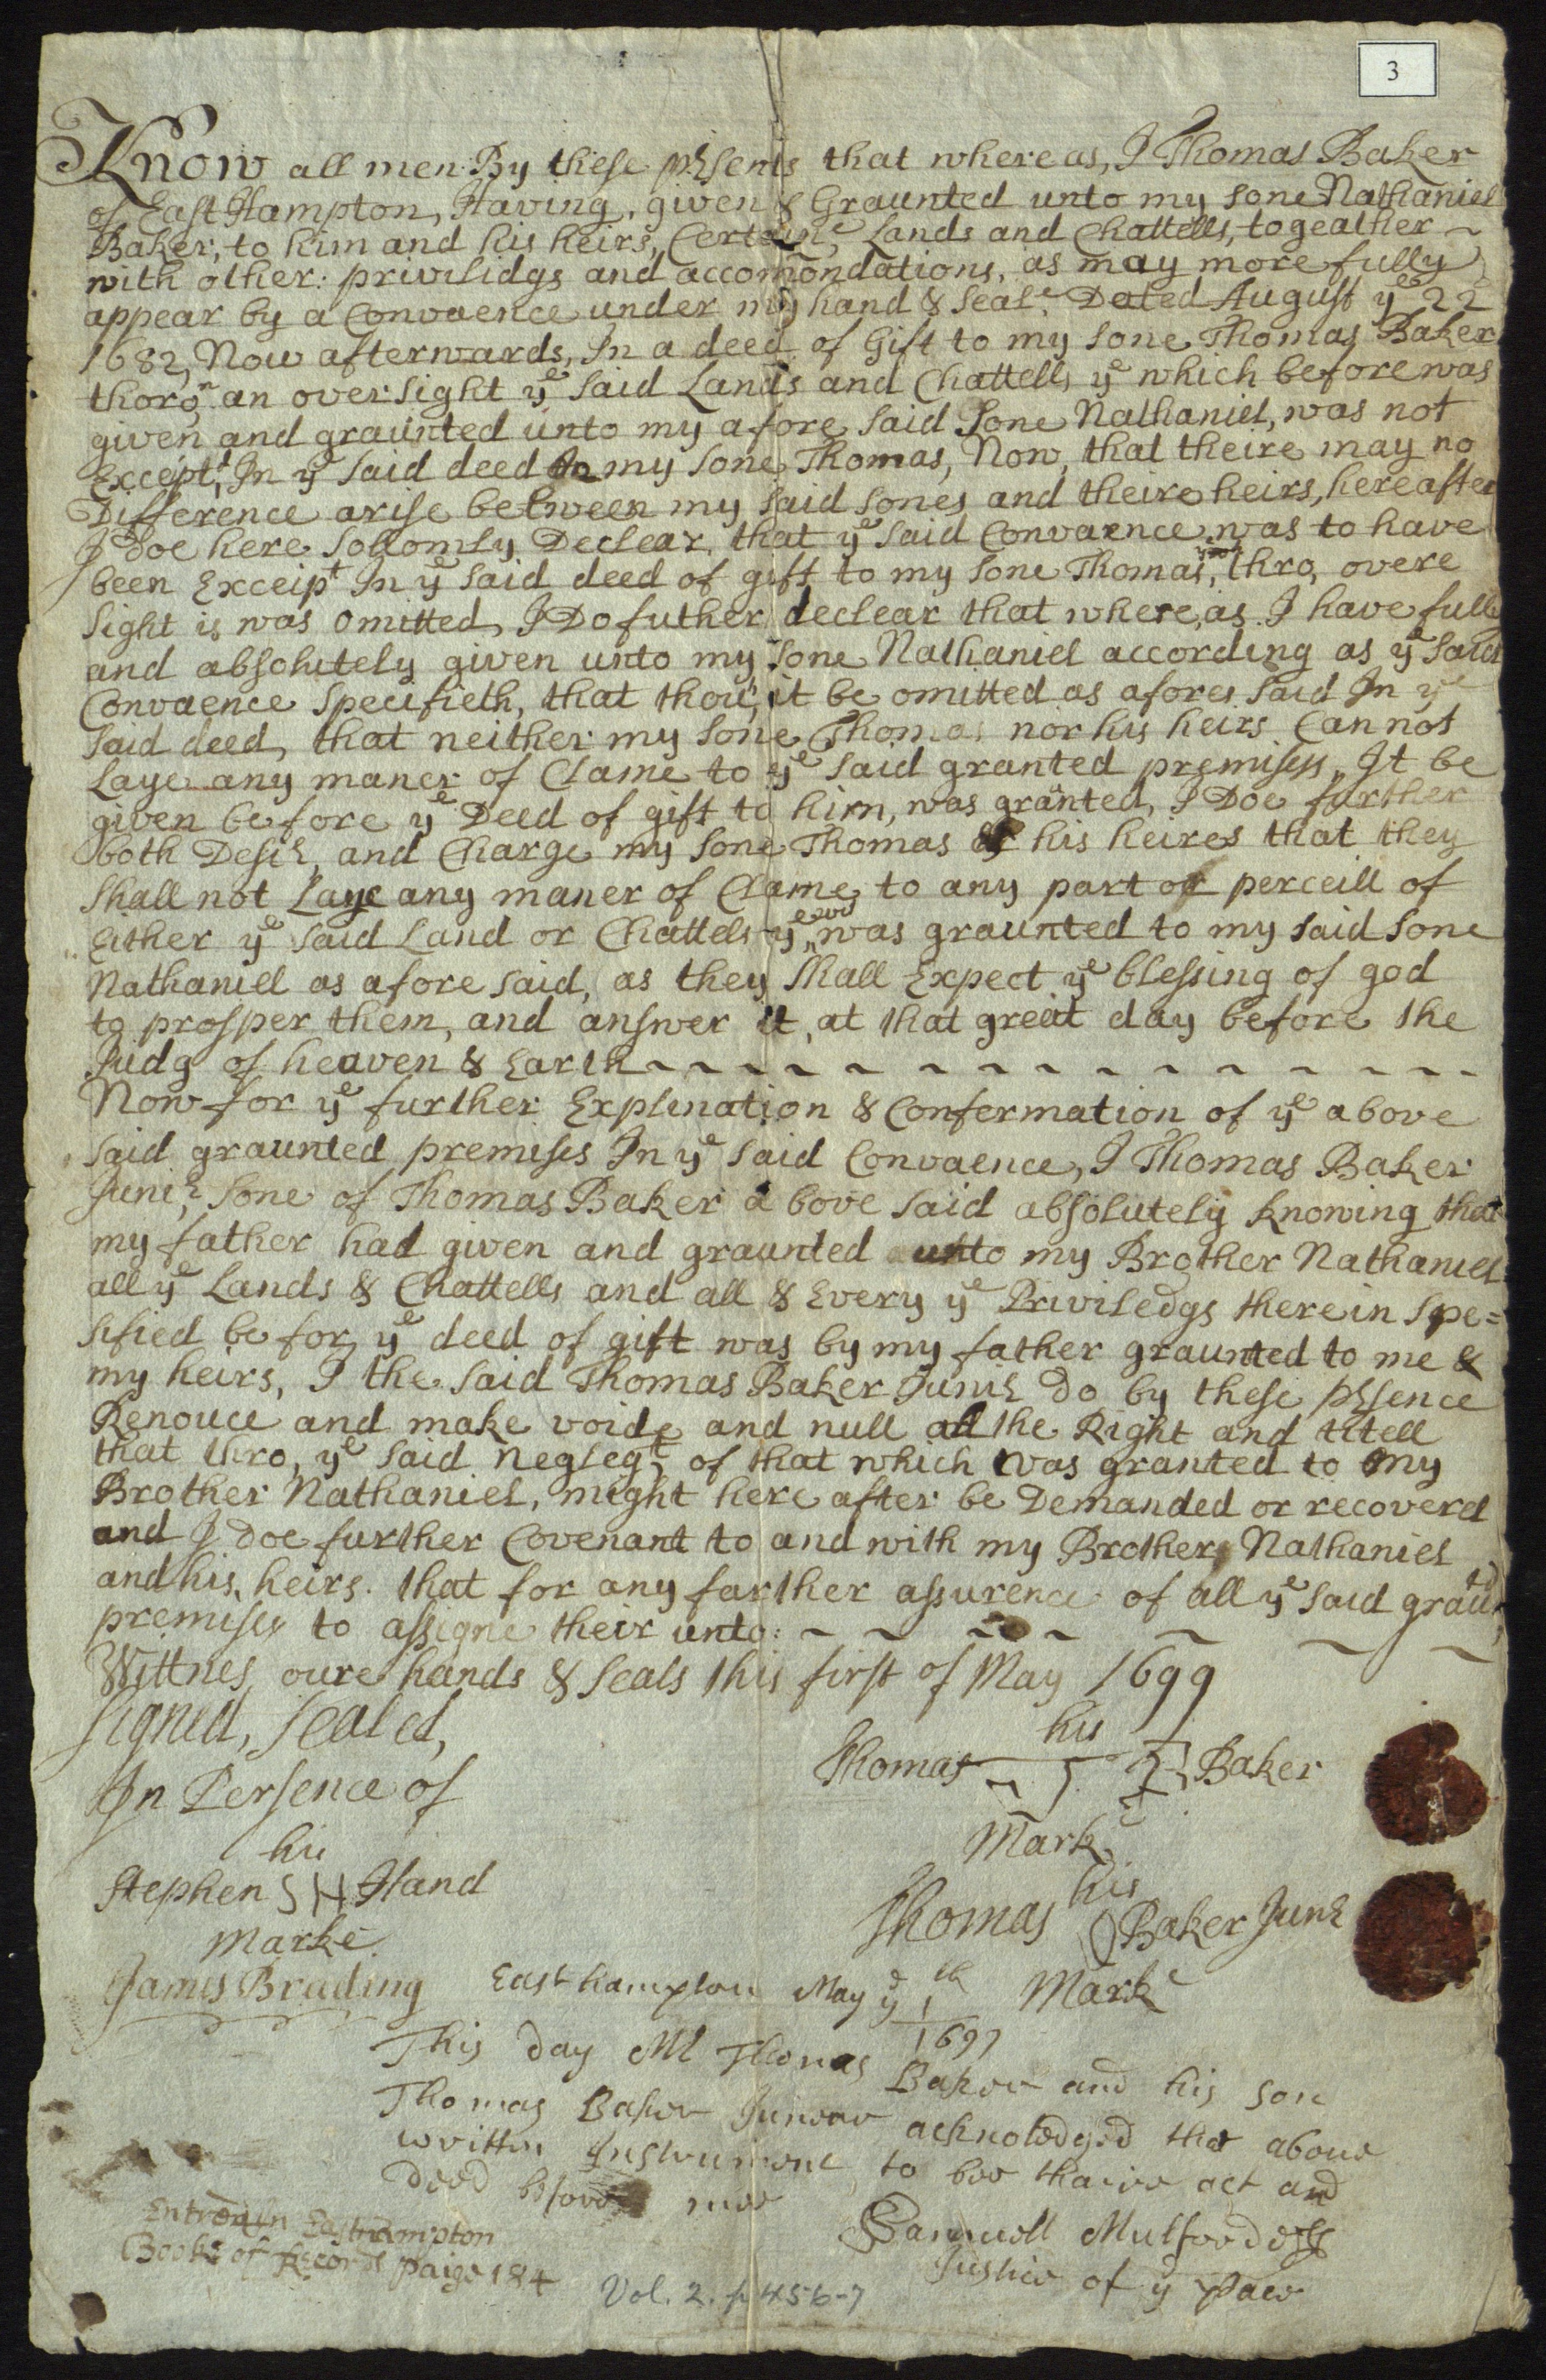 3
Know all men By these presents that where as, I Thomas Baker
of East Hampton, Having, given & Graunted unto my sone Nathaniel
Baker, to him and his heirs, Certaine, Lands and Chattells, togeather ~
with other: privilidgs and accomondations, as may more fully
appear by a Convaence under my hand & seale Dated August ye 22
1682, Now afterwards, In a deed of Gift to my sone Thomas Baker
thoro an oversight ye said Lands and Chattells ye which before was
given and graunted unto my afore said Sone Nathaniel, was not
Exceptd, In ye said deed to my sone Thomas, Now, that theire may no
Difference arise between my said sones and theire heirs, hereafter
I doe here sollomly Declear, that ye said Convaence was to have
been Exceipt In ye said deed of gift to my sone Thomas, thro, overe
sight is was omitted, I Do futher declear that where,as I have fully
and absolutely given unto my sone Nathaniel according as ye said
Convaence specifieth, that thou, it be omitted as afores said In ye
said deed, that neither my sone Thomas nor his heirs Can not
Laye any maner of Clame to ye said granted premisess, It be
given before ye Deed of gift to him, was granted, I Doe further
both Desir, and Charge my sone Thomas & his heires that they
shall not Laye any maner of Clame to any part or perceill of
Either ye said Land or Chattels ye was graunted to my said sone
Nathaniel as afore said, as they shall Expect ye blessing of god
to prosper them, and answer it, at that great day before the
Judg of heaven & Earth ~ ~ ~ ~ ~ ~ ~ ~ ~ ~ ~ ~ ~
Now for ye further Explination & Confermation of ye above
said graunted premises In ye said Convaence, I Thomas Baker
Junir, sone of Thomas Baker above said absolutely knowing that
my father had given and graunted unto my Brother Nathaniel
all ye Lands & Chattells and all & Every ye Priviledgs therein spe=
sified befor ye deed of gift was by my father graunted to me &
my heirs, I the said Thomas Baker Junir do by these prsence
Renouce and make voide and null all the Right and titell
that thro, ye said neglegt, of that which was granted to my
Brother Nathaniel, might here after be Demanded or recoverd
and I doe further Covenant to and with my Brother Nathaniel
and his heirs. that for any farther assurence of all ye said grautd
premises to assigne their unto: ~ ~ ~ ~ ~ ~ ~
Wittnes oure hands & seals this first of May 1699
signed, sealed,
In Persence of
his
Thomas Baker
Marke
his
Stephen SH Hand
marke
his
Thomas Baker Junr
Marke
James Brading
Easthampton May ye 1th
1699
This day Mr Thomas Baker and his son
Thomas Baker Junear acknoledged the above
written Instrument to bee thaire act and
deed before mee
Samuell Mulford
Justice of ye Pace
Entred in Easthampton
Booke of Records paige 184
Vol. 2. p 456-7